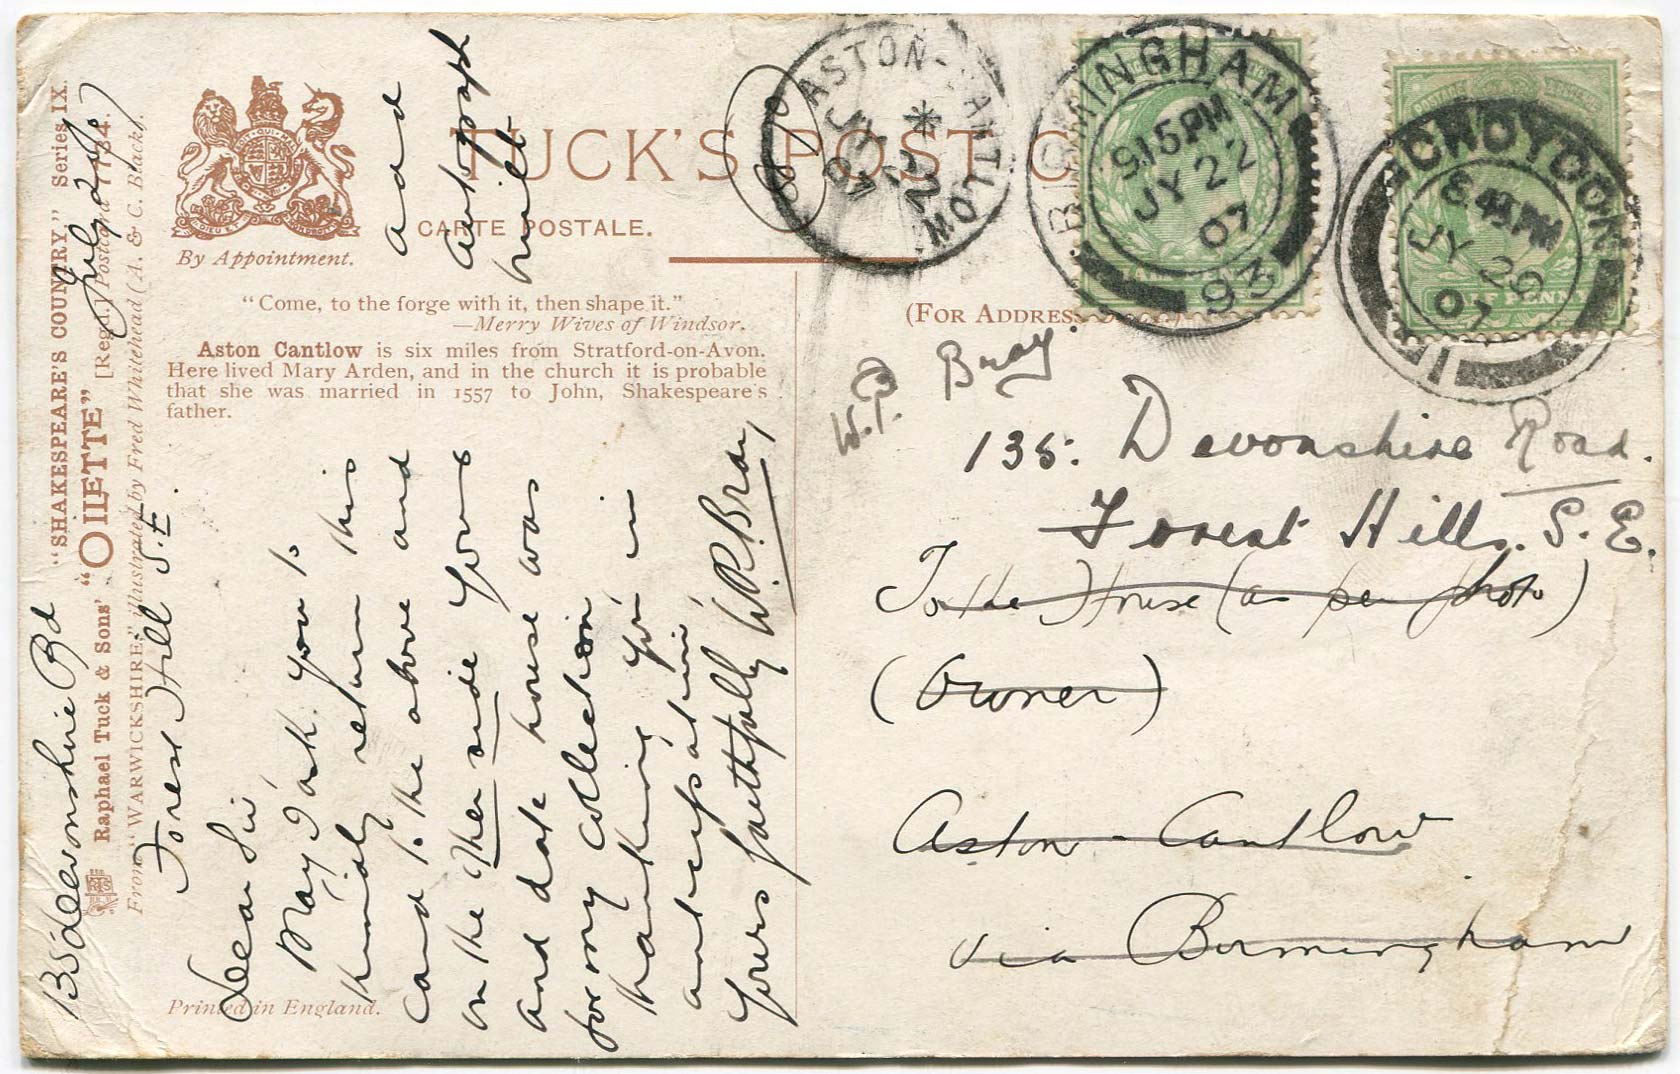 "SHAKESPEARE'S COUNTRY," Series IX.
Raphael Tuck & Sons' "OILETTE" [Regd.] Postcard 7734.
From "WARWICKSHIRE," illustrated by Fred Whitehead (A. & C. Black).
By Appointment.
TUCK'S POST C
CARTE POSTALE.
"Come, to the forge with it, then shape it."
—Merry Wives of Windsor.
Aston Cantlow is six miles from Stratford-on-Avon.
Here lived Mary Arden, and in the church it is probable
that she was married in 1557 to John, Shakespeare's
father.
(For Address
Printed in England.
135 Devonshire Rd
Forest Hill S.E.
July 20/07
Dear Sir
May I ask you to
kindly return this
card to the above and
on the other side yours
and date house was
built
and
autograph
for my collection
thanking you in
anticipation,
Yours faithfully W.P. Bray
ASTON-CANTLOW
JY 22
07
BIRMINGHAM
9.15 PM
JY 22
07
93
CROYDON
8.45 PM
JY 29
07
1
HALF PENNY
W.P. Bray
135. Devonshire Road.
Forest Hill. S.E.
To the House (as per photo)
(Owner)
Aston-Cantlow
via Birmingham